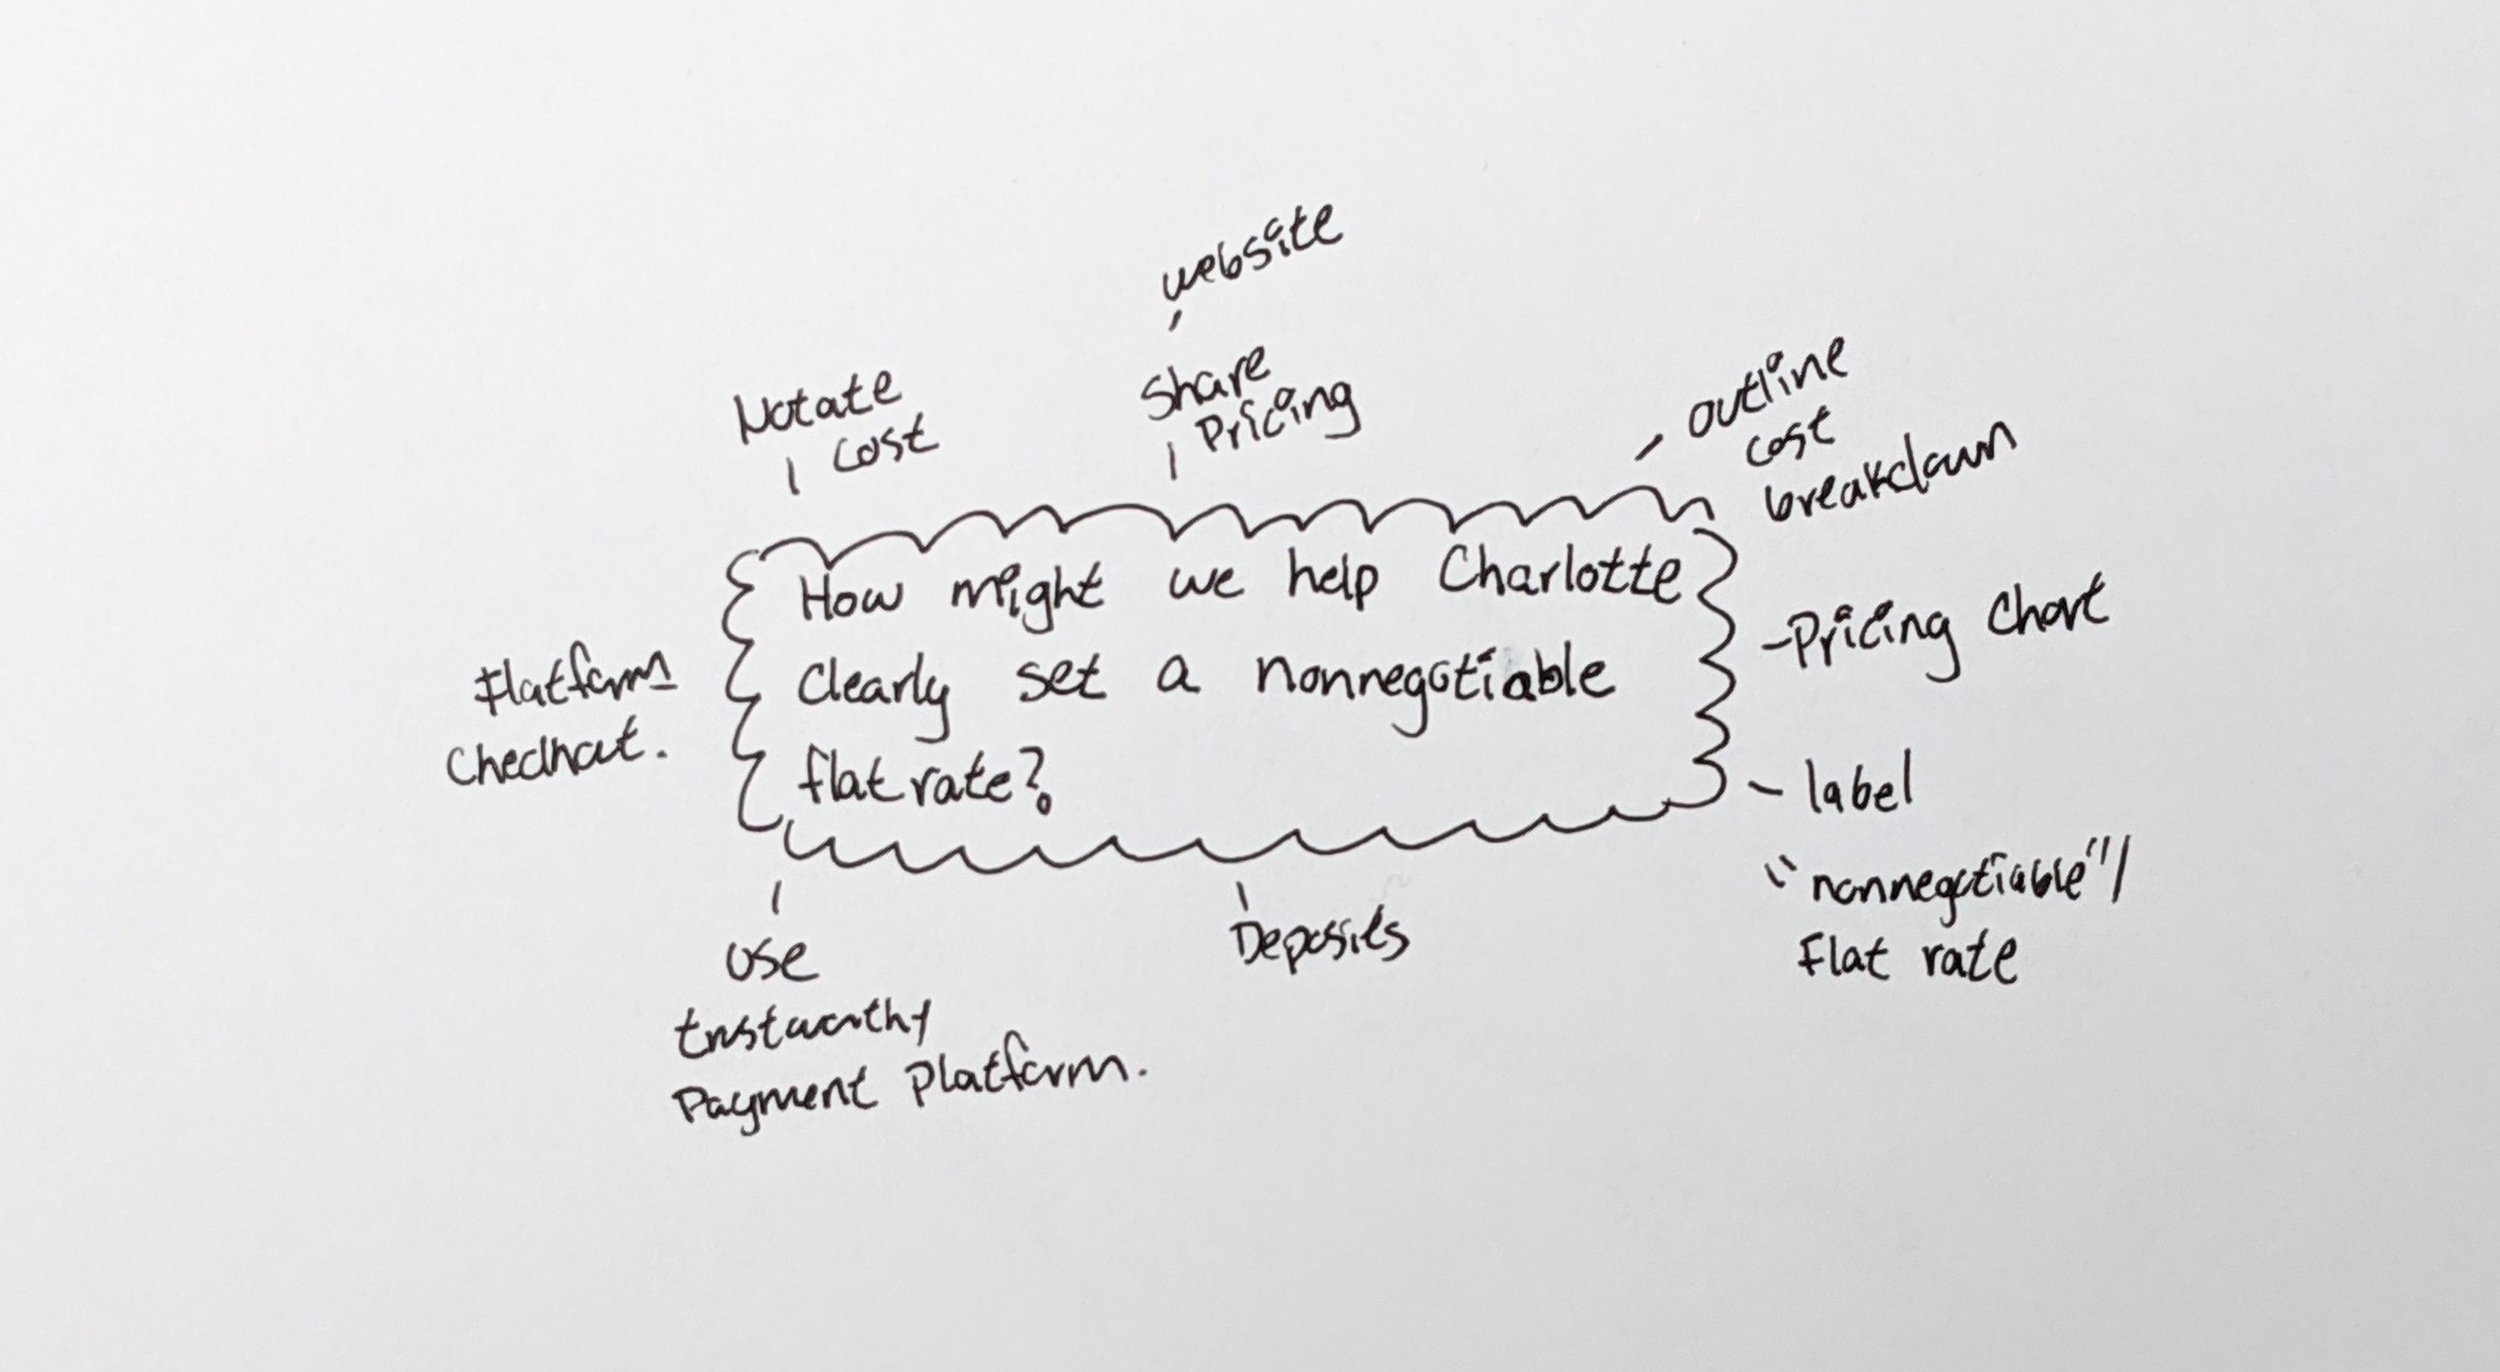 website
Share
Pricing
Notate
cost
outline
cost
breakdown
How might we help Charlotte
clearly set a nonnegotiable
flat rate?
-Pricing Chart
Platform
Checkout.
- label
"nonnegotiable"/
Flat rate
Use
trustworthy
Payment Platform.
Deposits